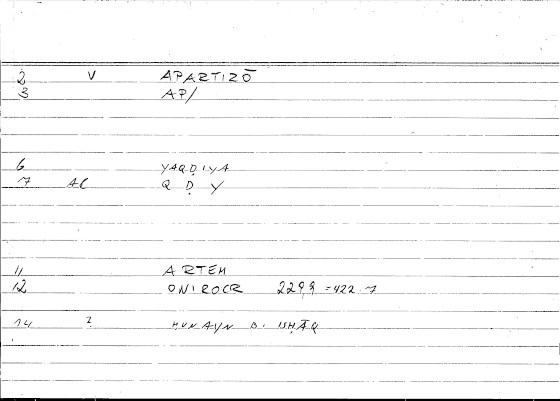 2 V APARTIZŌ
3 AP/
6 YAQḌIYA
7 AC Q Ḍ Y
11 ARTEM
12 ONIROCR 229,9 = 422.7
14 ? ḤUNAYN B. ISḤĀQ